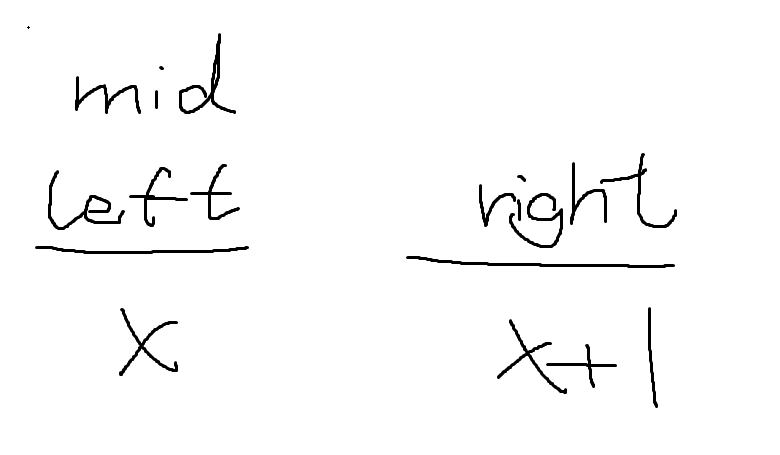 mid
left right
x x+1